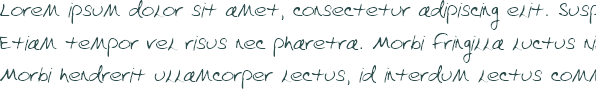 Lorem ipsum dolor sit amet, consectetur adipiscing elit. Susp
Etiam tempor vel risus nec pharetra. Morbi fringilla luctus ni
Morbi hendrerit ullamcorper lectus, id interdum lectus comm